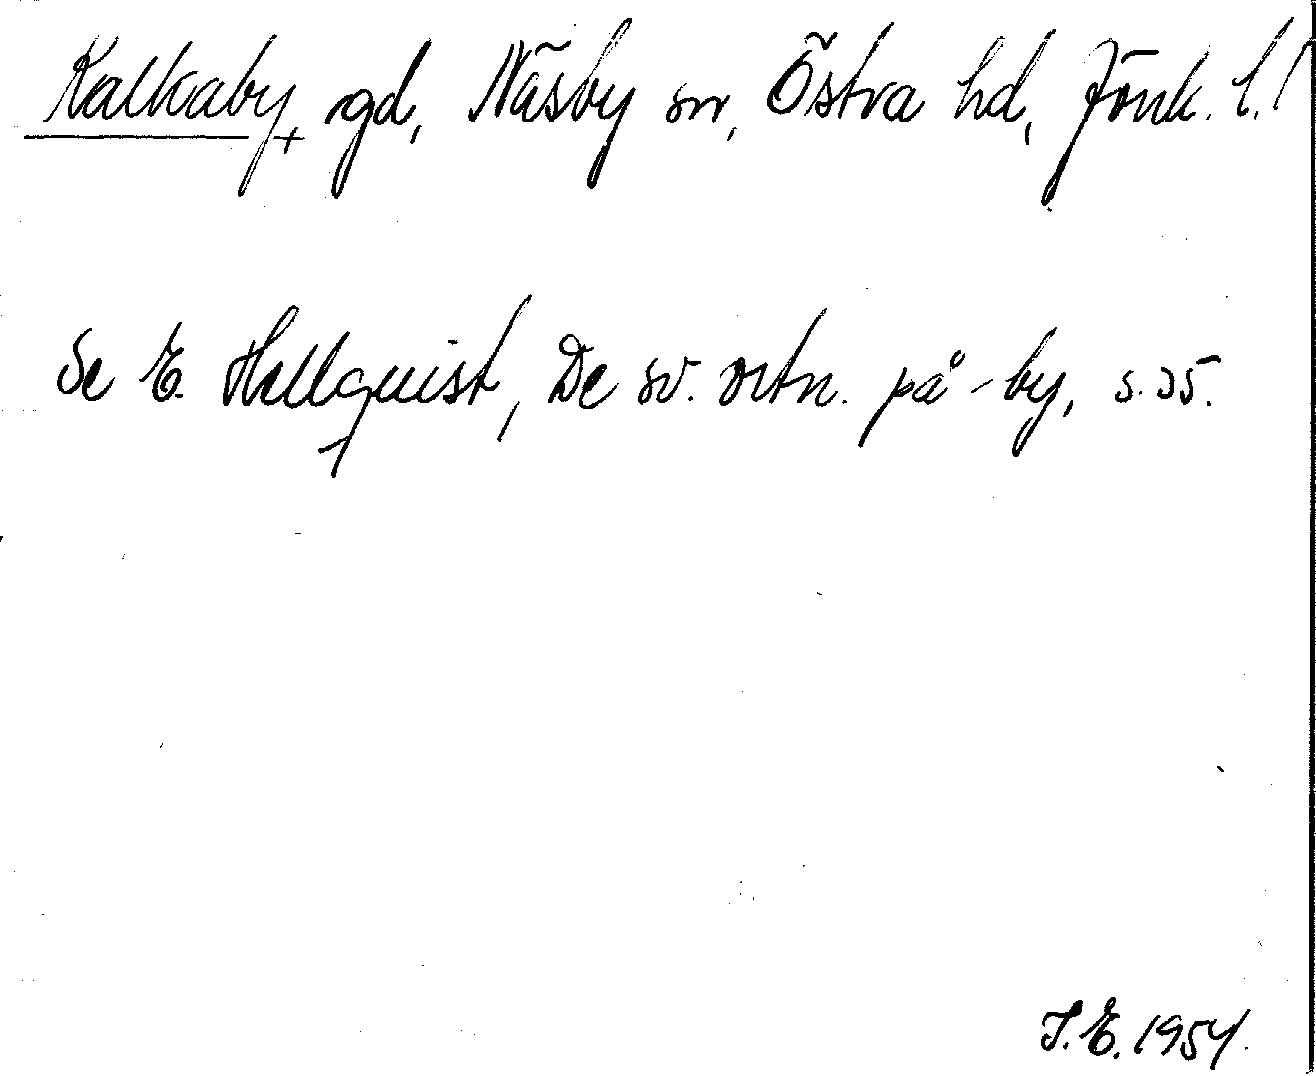 Kalkaby, rgd, Näsby sn, Östra hd, Jönk. l.
Se E. Hellquist, De sv. ortn. på -by, s. 35.
I.E. 1954.